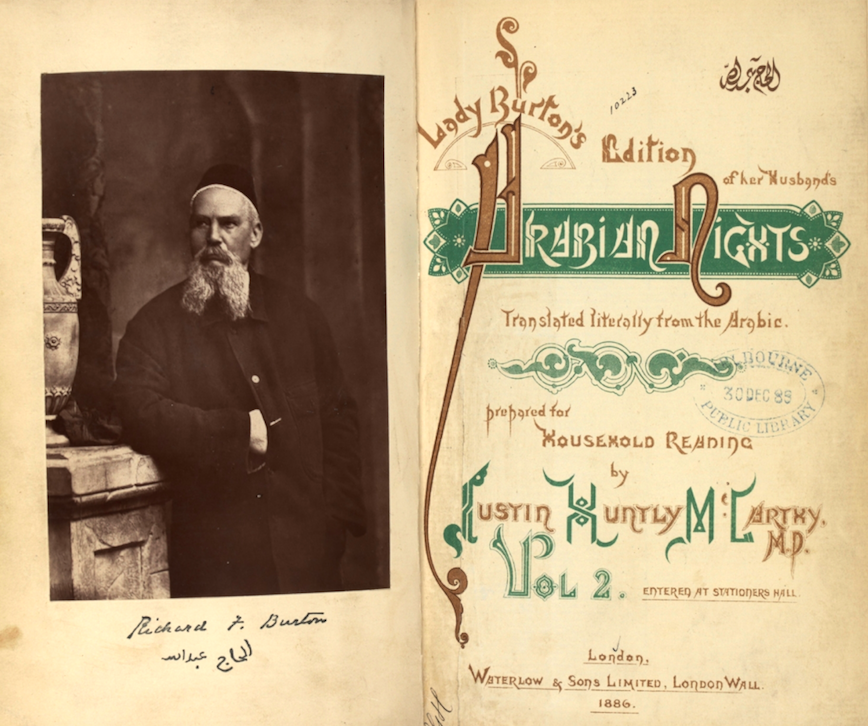 Richard F. Burton
الحاج عبدالله
10223
Lady Burton's
Edition
of her Husband's
Arabian Nights
Translated literally from the Arabic.
MELBOURNE
30 DEC
PUBLIC LIBRARY
prepared for
Household Reading
by
Justin Huntly McCarthy,
M.P.
Vol 2.
Entered at Stationers Hall.
London.
Waterlow & Sons Limited, London Wall.
1886.